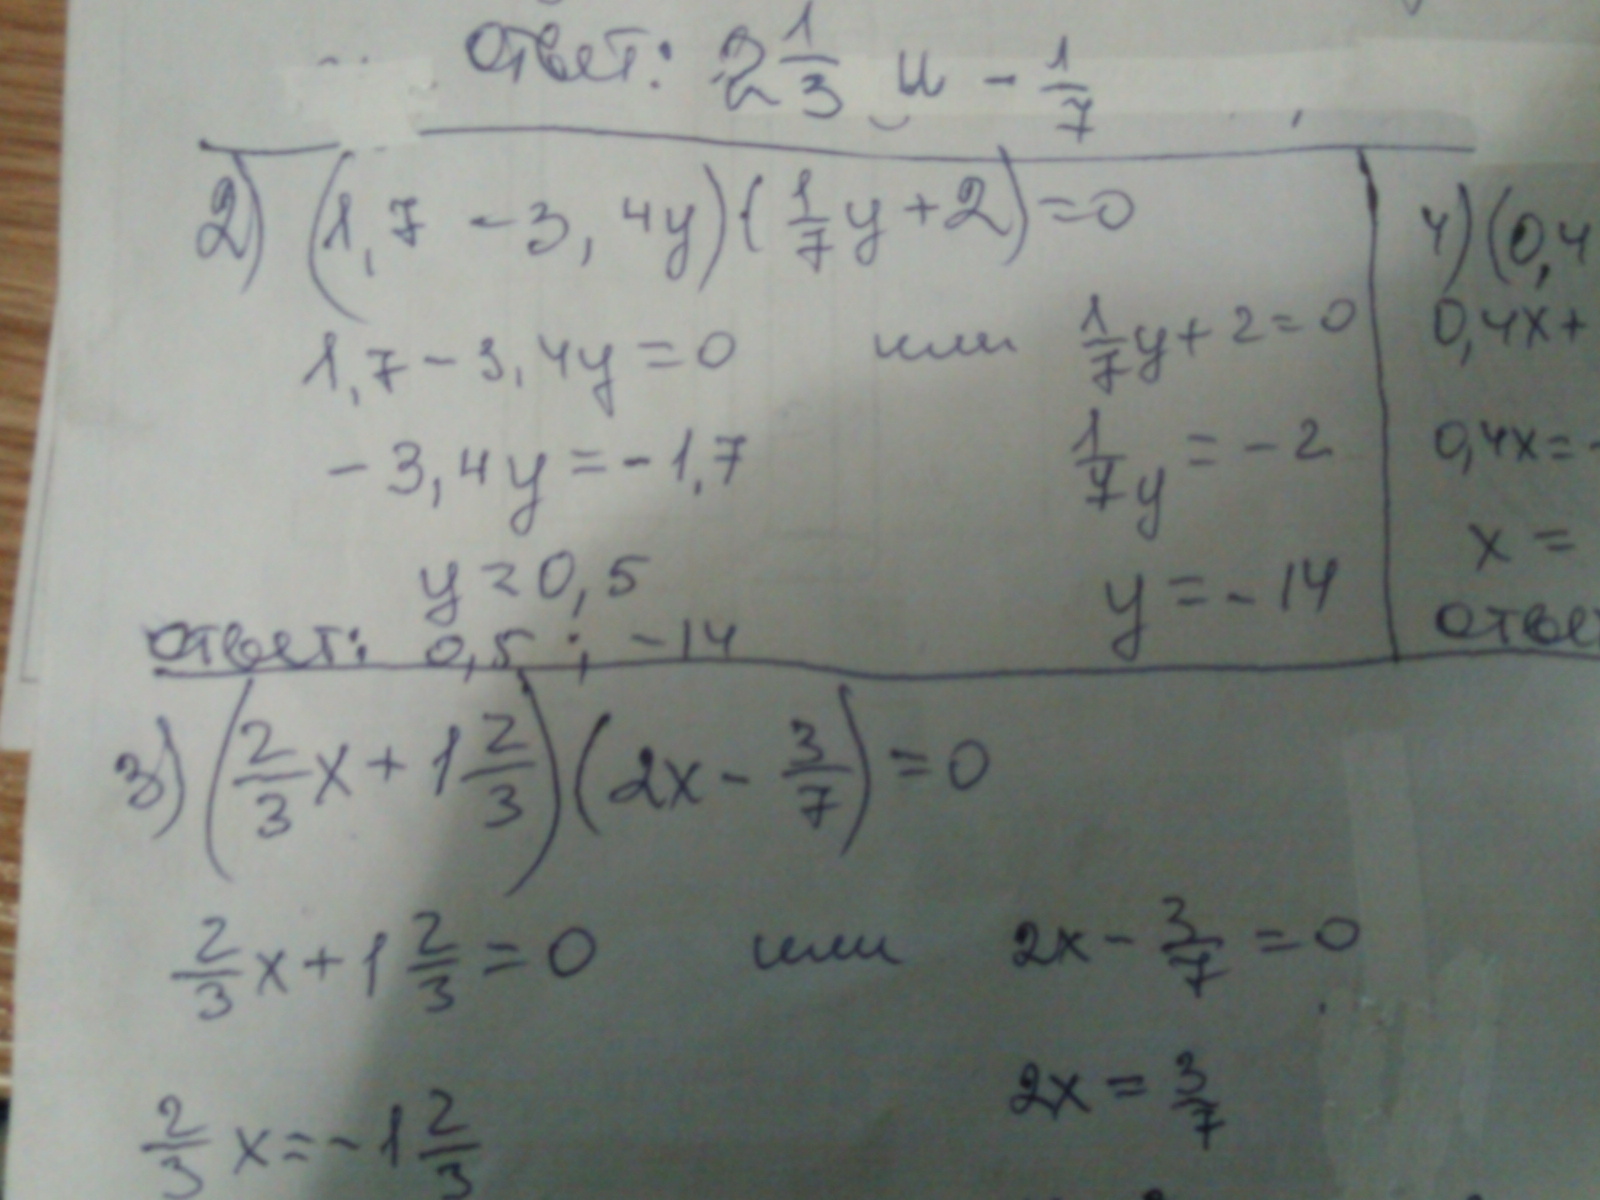 Ответ: 2 1/3 и - 1/7
2) (1,7 - 3,4y)(1/7 y + 2) = 0
1,7 - 3,4y = 0 или 1/7 y + 2 = 0
- 3,4y = - 1,7 1/7 y = - 2
y = 0,5 y = - 14
Ответ: 0,5 ; -14
4) (0,4
0,4x +
0,4x = -
x =
ответ
3) (2/3 x + 1 2/3)(2x - 3/7) = 0
2/3 x + 1 2/3 = 0 или 2x - 3/7 = 0
2/3 x = - 1 2/3 2x = 3/7